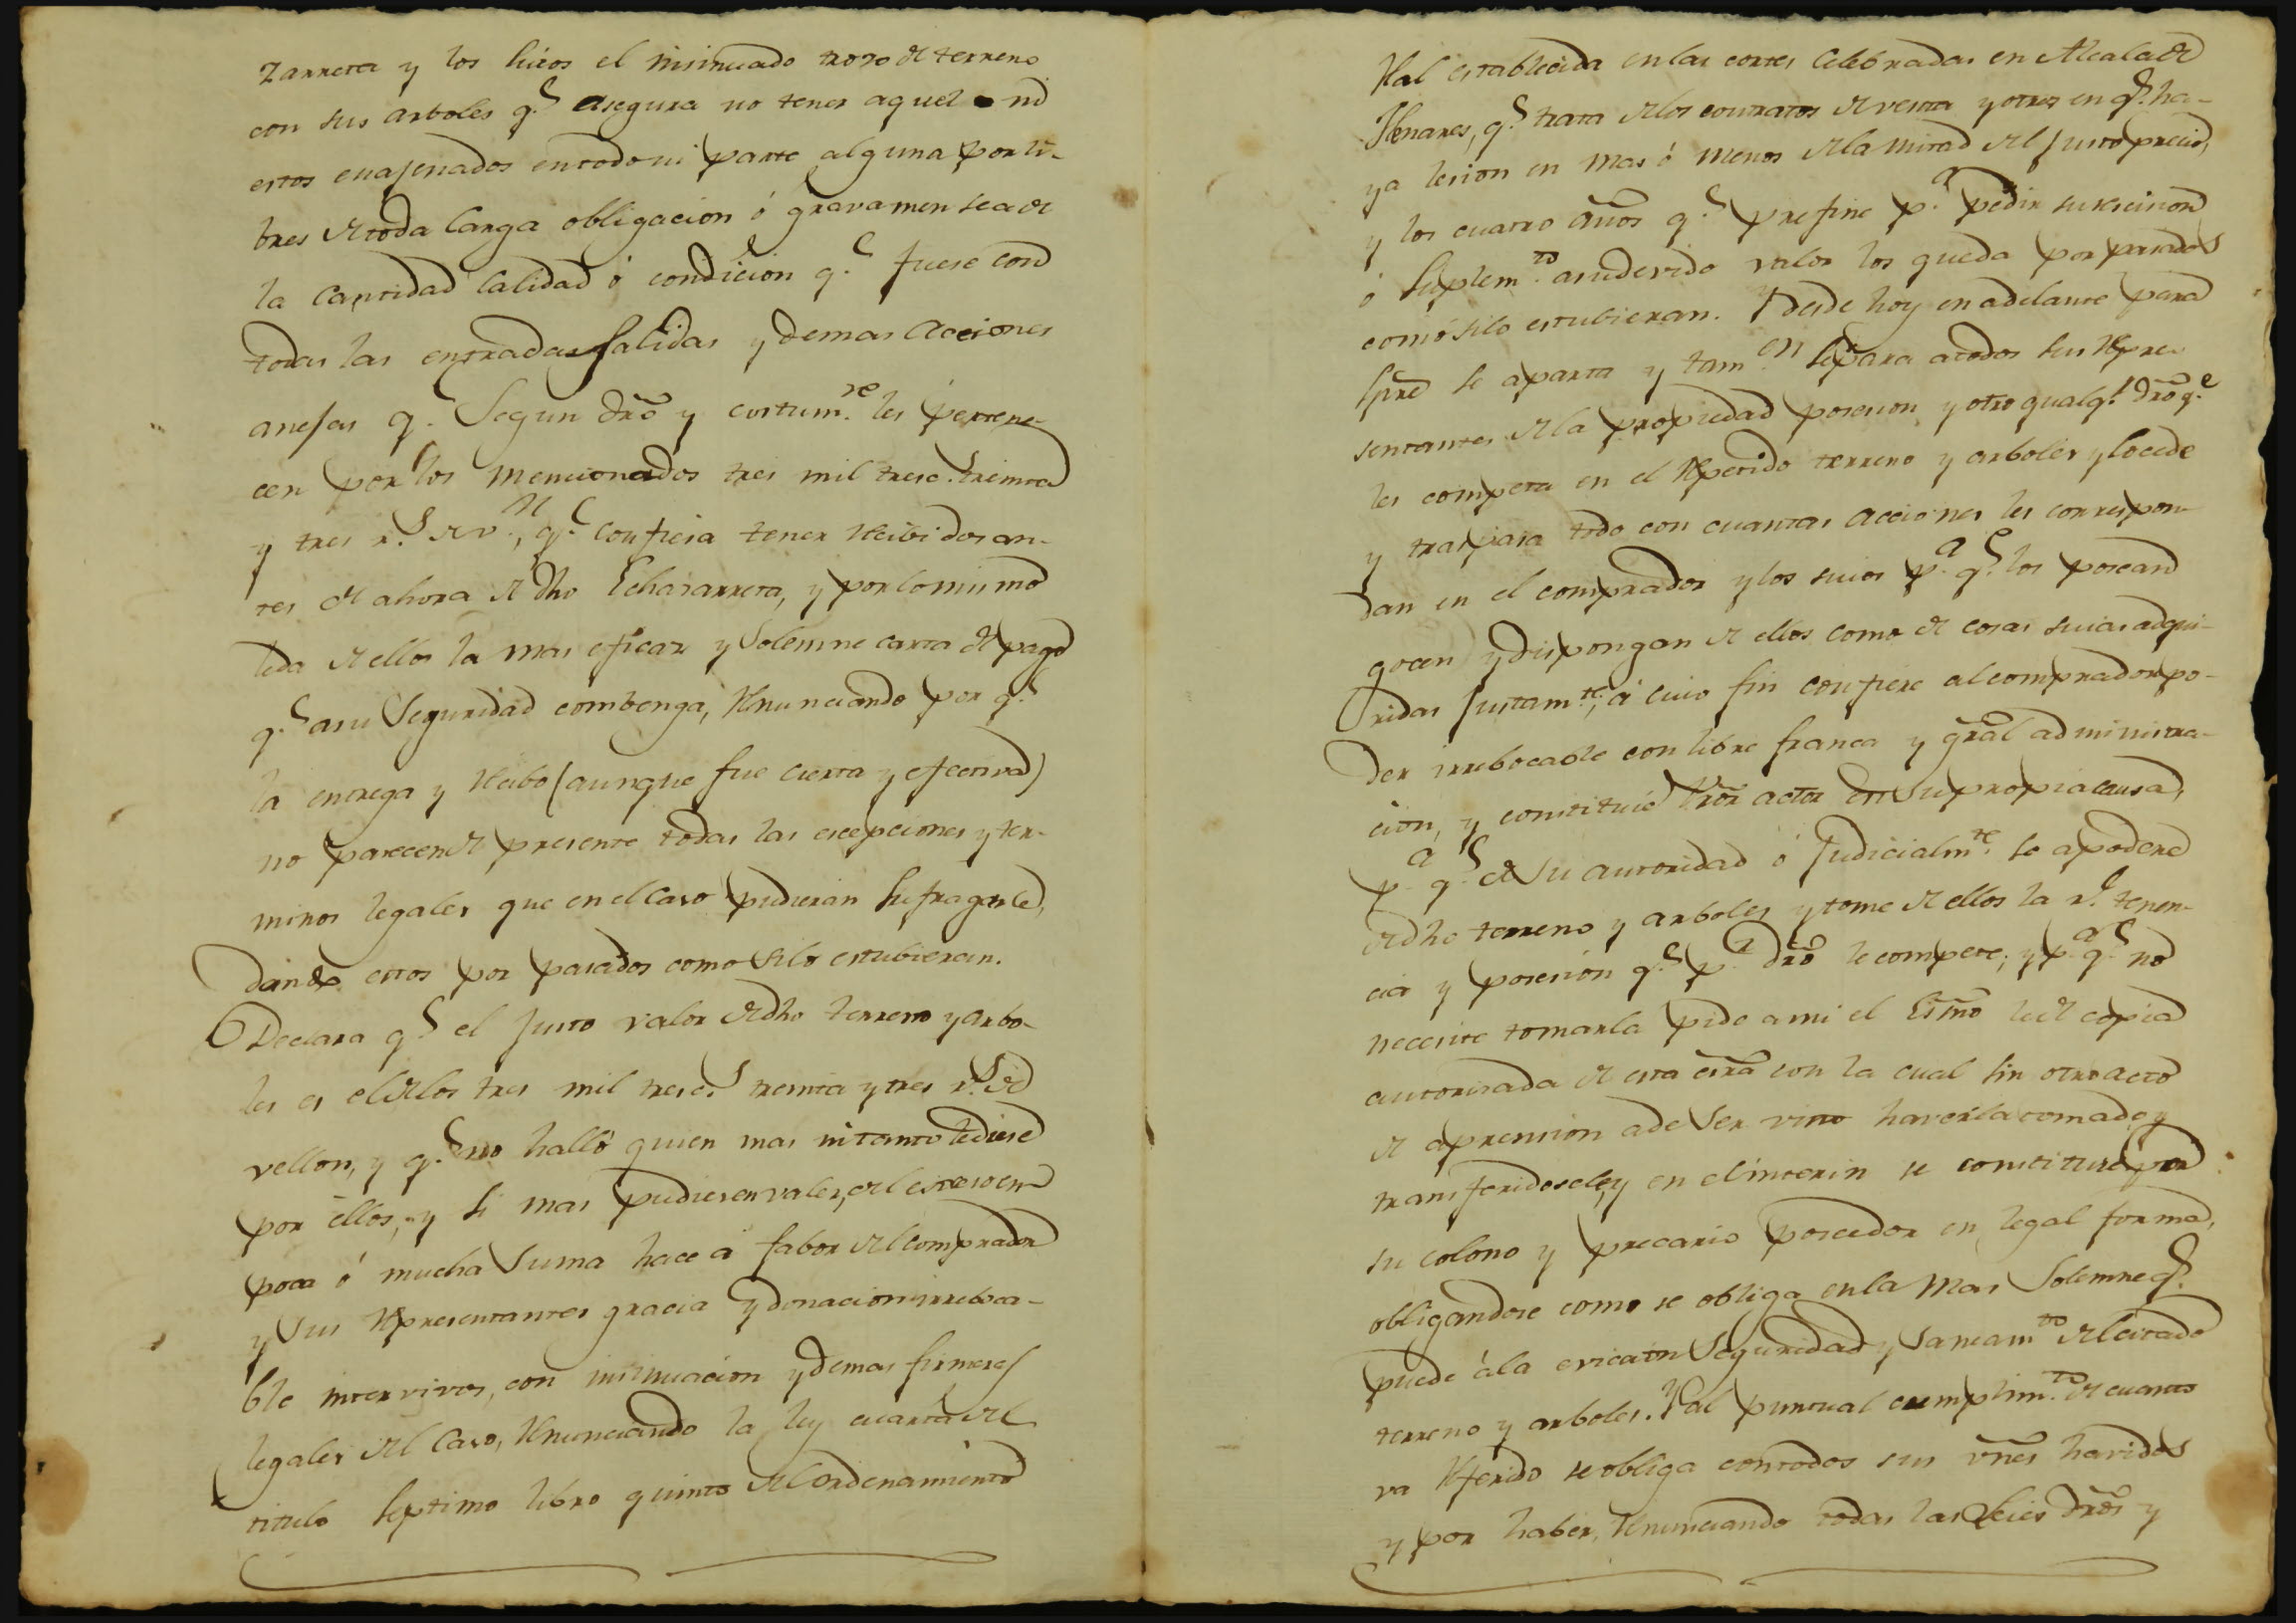 zarreta y los suios el insinuado trozo de terreno
con sus arboles q.e asegura no tener aquel ni
estos enajenados en todo ni parte alguna por li-
bres de toda Carga obligacion ó gravamen sea de
la Cantidad Calidad ó condicion q.e fuese con
todas las entradas salidas y demas Acciones
anejas q.e Segun dro y costum.re les pertene-
cen por los mencionados tres mil tresc.s treinta
y tres r.s de v.n, q.e confiesa tener recibidos an-
tes de ahora de dho Echazarreta, y por lo mismo
le da de ellos la mas eficaz y Solemne carta de pago
q.e a su Seguridad combenga, renunciando por q.e
la entrega y recibo (aunque fue cierta y efectiva)
no parecen de presente todas las escepciones y ter-
minos legales que en el Caso pudieran sufragarle,
dando estos por pasados como si lo estubieran.
Declara q.e el justo valor de dho terreno y arbo-
les es el de los tres mil tresc.s treinta y tres r.s de
vellon, y q.e no halló quien mas ni tanto le diese
por éllos, y si mas pudiesen valer, del esceso en
poca ó mucha Suma hace á fabor del comprador
y Sus representantes gracia y donacion irreboca-
ble inter vivos, con insinuacion y demas firmezas
legales del Caso, renunciando la ley cuarta del
titulo septimo libro quinto del Ordenamiento
Ral establecida en las cortes Celebradas en Alcala de
Henares, q.e trata de los contratos de venta y otros en q.e ha-
ya lesion en mas ó menos de la mitad del justo precio,
y los cuatro años q.e prefine p.a pedir su rescision
ó Suplem.to a su devido valor los queda por pasados
como si lo estubieran. Y desde hoy en adelante para
spre se aparta y tam.en separa a todos sus repre-
sentantes de la propiedad posesion y otro qualq.r dro q.e
les competa en el repetido terreno y arboles y lo cede
y traspasa todo con cuantas acciones les correspon-
dan en el comprador y los suios p.a q.e los posean
gocen y dispongan de ellos como de cosas suias adqui-
ridas justam.te, á cuio fin confiere al comprador po-
der irrebocable con libre franca y gral administra-
cion, y constituie Pror actor en Su propia causa,
p.a q.e de Su autoridad ó judicialm.te se apodere
de dho terreno y arboles y tome de ellos la r.l tenen-
cia y posesion q.e p.r dro le compete; y p.a q.e no
necesite tomarla pide a mi el Essno le dé copia
autorizada de esta essra con la cual sin otro acto
de aprension a de Ser visto haverla tomado y
transferidosele, y en el interin se constituie por
su colono y precario poseedor en legal forma,
obligandose como se obliga en la mas Solemne q.e
puede á la eviccion Seguridad y Saneam.to del citado
terreno y arboles. Y al puntual cumplim.to de cuanto
va referido se obliga con todos sus vnes havidos
y por haber, renunciando todas las Leies dros y